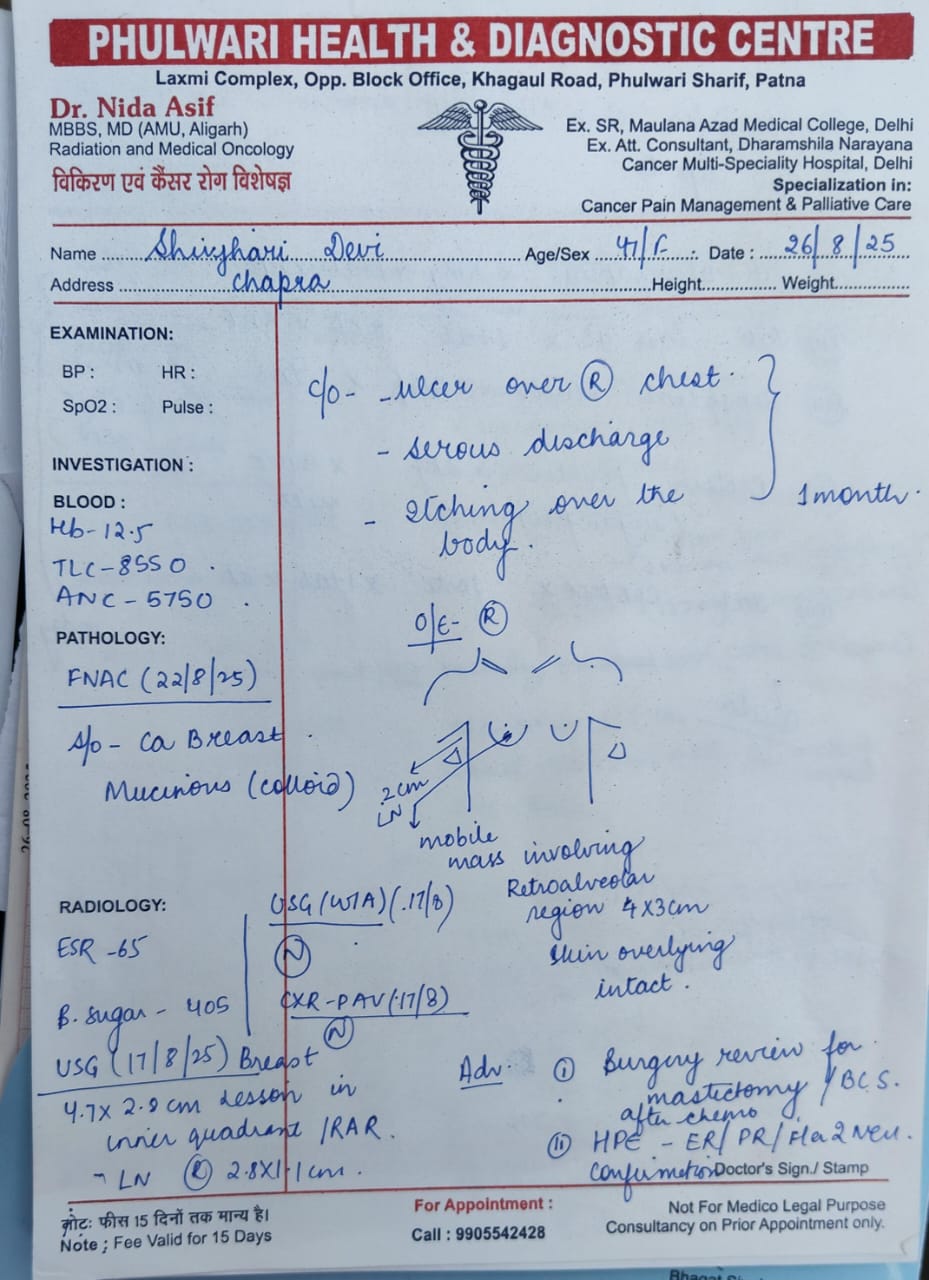 PHULWARI HEALTH & DIAGNOSTIC CENTRE
Laxmi Complex, Opp. Block Office, Khagaul Road, Phulwari Sharif, Patna
Dr. Nida Asif
MBBS, MD (AMU, Aligarh)
Radiation and Medical Oncology
विकिरण एवं कैंसर रोग विशेषज्ञ
Ex. SR, Maulana Azad Medical College, Delhi
Ex. Att. Consultant, Dharamshila Narayana
Cancer Multi-Speciality Hospital, Delhi
Specialization in:
Cancer Pain Management & Palliative Care
Name ...... Devi ...... Age/Sex ...... Date : 26/8/25
Address ...... chapra ...... Height............... Weight................
EXAMINATION:
BP : HR :
SpO2 : Pulse :
INVESTIGATION :
BLOOD :
Hb - 12.5
TLC - 8550 .
ANC - 5750 .
PATHOLOGY:
FNAC (22/8/25)
s/o - Ca Breast .
Mucinous (colloid)
RADIOLOGY:
ESR - 65
B. Sugar - 405
USG (W/A) (17/8)
(N)
CXR - PAV (17/8)
(N)
USG (17/8/25) Breast
4.7 x 2.9 cm Lesson in
inner quadrant / RAR.
LN (R) 2.8X1.1 cm.
c/o - - ulcer over (R) chest .
- serous discharge
- Itching over the
body.
1 month .
O/E - (R)
2 cm
LN
mobile
mass involving
Retroalveolar
region 4X3cm
skin overlying
intact .
Adv. (i) Surgery review for
mastectomy / BCS.
after chemo
(ii) HPE - ER/ PR/ Her 2 Neu.
confirmation
Doctor's Sign./ Stamp
नोट: फीस 15 दिनों तक मान्य है।
Note ; Fee Valid for 15 Days
For Appointment :
Call : 9905542428
Not For Medico Legal Purpose
Consultancy on Prior Appointment only.